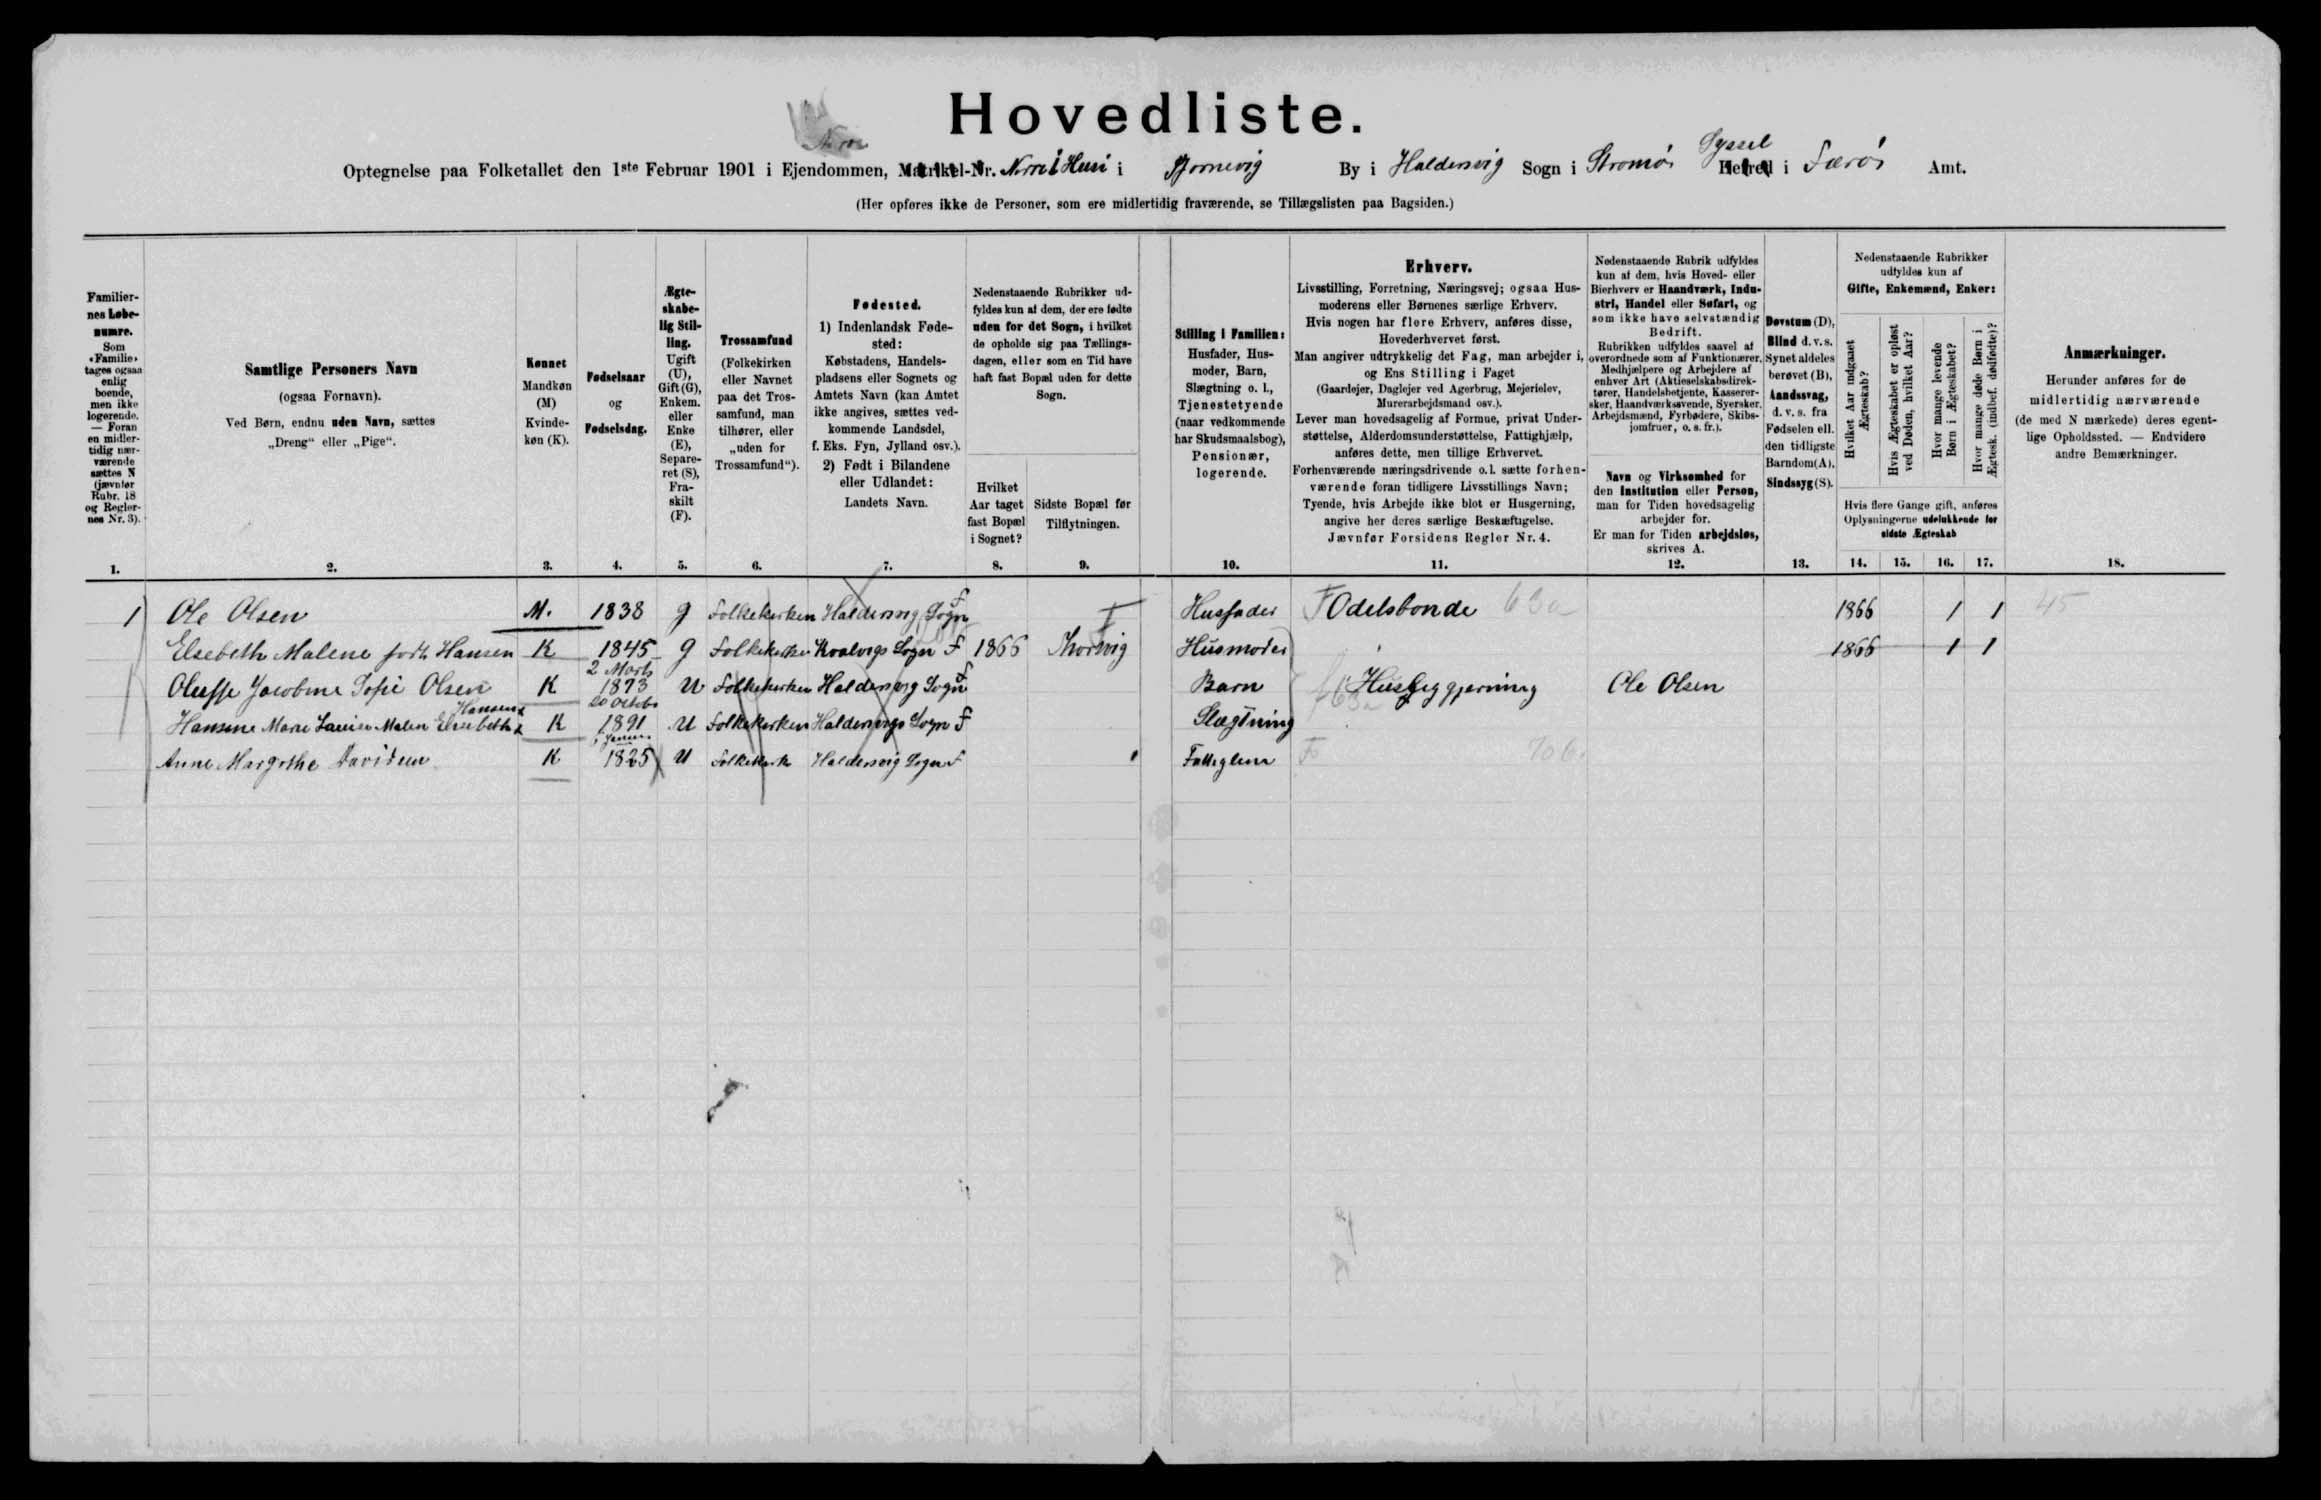 Hovedliste.
Optegnelse paa Folketallet den 1ste Februar 1901 i Ejendommen, Matrikel-Nr. Norri i Husi i Tjornevig By i Haldersvig Sogn i Stromø Syssel Herred i Færø Amt.
(Her opføres ikke de Personer, som ere midlertidig fraværende, se Tillægslisten paa Bagsiden.)
Familier-
nes Løbe-
numre.
Som
«Familie»
tages ogsaa
enlig
boende,
men ikke
logerende.
— Foran
en midler-
tidig nær-
værende
sættes N
(jævnfør
Rubr. 18
og Regler-
nes Nr. 3).
1.
Samtlige Personers Navn
(ogsaa Fornavn).
Ved Børn, endnu uden Navn, sættes
„Dreng“ eller „Pige“.
2.
Kønnet
Mandkøn
(M)
Kvinde-
køn (K).
3.
Fødselsaar
og
Fødselsdag.
4.
Ægte-
skabe-
lig Stil-
ling.
Ugift
(U),
Gift (G),
Enkem.
eller
Enke
(E),
Separe-
ret (S),
Fra-
skilt
(F).
5.
Trossamfund
(Folkekirken
eller Navnet
paa det Tros-
samfund, man
tilhører, eller
„uden for
Trossamfund“).
6.
Fødested.
1) Indenlandsk Føde-
sted:
Købstadens, Handels-
pladsens eller Sognets og
Amtets Navn (kan Amtet
ikke angives, sættes ved-
kommende Landsdel,
f. Eks. Fyn, Jylland osv.).
2) Født i Bilandene
eller Udlandet:
Landets Navn.
7.
Nedenstaaende Rubrikker ud-
fyldes kun af dem, der ere fødte
uden for det Sogn, i hvilket
de opholde sig paa Tællings-
dagen, eller som en Tid have
haft fast Bopæl uden for dette
Sogn.
Hvilket
Aar taget
fast Bopæl
i Sognet?
8.
Sidste Bopæl før
Tilflytningen.
9.
Stilling i Familien:
Husfader, Hus-
moder, Barn,
Slægtning o. l.,
Tjenestetyende
(naar vedkommende
har Skudsmaalsbog),
Pensionær,
logerende.
10.
Erhverv.
Livsstilling, Forretning, Næringsvej; ogsaa Hus-
moderens eller Børnenes særlige Erhverv.
Hvis nogen har flere Erhverv, anføres disse,
Hovederhvervet først.
Man angiver udtrykkelig det Fag, man arbejder i,
og Ens Stilling i Faget
(Gaardejer, Daglejer ved Agerbrug, Mejerielev,
Murerarbejdsmand osv.).
Lever man hovedsagelig af Formue, privat Under-
støttelse, Alderdomsunderstøttelse, Fattighjælp,
anføres dette, men tillige Erhvervet.
Forhenværende næringsdrivende o.l. sætte forhen-
værende foran tidligere Livsstillings Navn;
Tyende, hvis Arbejde ikke blot er Husgerning,
angive her deres særlige Beskæftigelse.
Jævnfør Forsidens Regler Nr. 4.
11.
Nedenstaaende Rubrik udfyldes
kun af dem, hvis Hoved- eller
Bierhverv er Haandværk, Indu-
stri, Handel eller Søfart, og
som ikke have selvstændig
Bedrift.
Rubrikken udfyldes saavel af
overordnede som af Funktionærer,
Medhjælpere og Arbejdere af
enhver Art (Aktieselskabsdirek-
tører, Handelsbetjente, Kasserer-
sker, Haandværkssvende, Syersker,
Arbejdsmænd, Fyrbødere, Skibs-
jomfruer, o. s. fr.).
Navn og Virksomhed for
den Institution eller Person,
man for Tiden hovedsagelig
arbejder for.
Er man for Tiden arbejdsløs,
skrives A.
12.
Døvstum (D),
Blind d. v. s.
Synet aldeles
berøvet (B),
Aandssvag,
d. v. s. fra
Fødselen ell.
den tidligste
Barndom (A),
Sindssyg (S).
13.
Nedenstaaende Rubrikker
udfyldes kun af
Gifte, Enkemænd, Enker:
Hvilket Aar indgaaet
Ægteskab?
Hvis Ægteskabet er opløst
ved Døden, hvilket Aar?
Hvor mange levende
Børn i Ægteskabet?
Hvor mange døde Børn i
Ægtesk. (indbef. dødfødte)?
Hvis flere Gange gift, anføres
Oplysningerne udelukkende for
sidste Ægteskab
14. 15. 16. 17.
Anmærkninger.
Herunder anføres for de
midlertidig nærværende
(de med N mærkede) deres egent-
lige Opholdssted. — Endvidere
andre Bemærkninger.
18.
1 Ole Olsen M. 1838 g Folkekirken Haldersvig Sogn F Husfader F Odelsbonde 63a 1866 1 1 45
Elsebeth Malene født Hansen K 1845 g Folkekirken Kvalvigs Sogn F 1866 Husmoder 1866 1 1
Oluffe Jacobine Sofie Olsen K 2 Marts 1873 U Folkekirken Haldersvig Sogn F Barn Husliggjerning Ole Olsen
Hansine Marie Malen Elsebeth Hansen K 20 Octobr 1891 U Folkekirken Haldersvigs Sogn F Slægtning
Anne Margrethe Davidsen K 1825 U Folkekirk Haldersvig Sogn F Fattiglem F